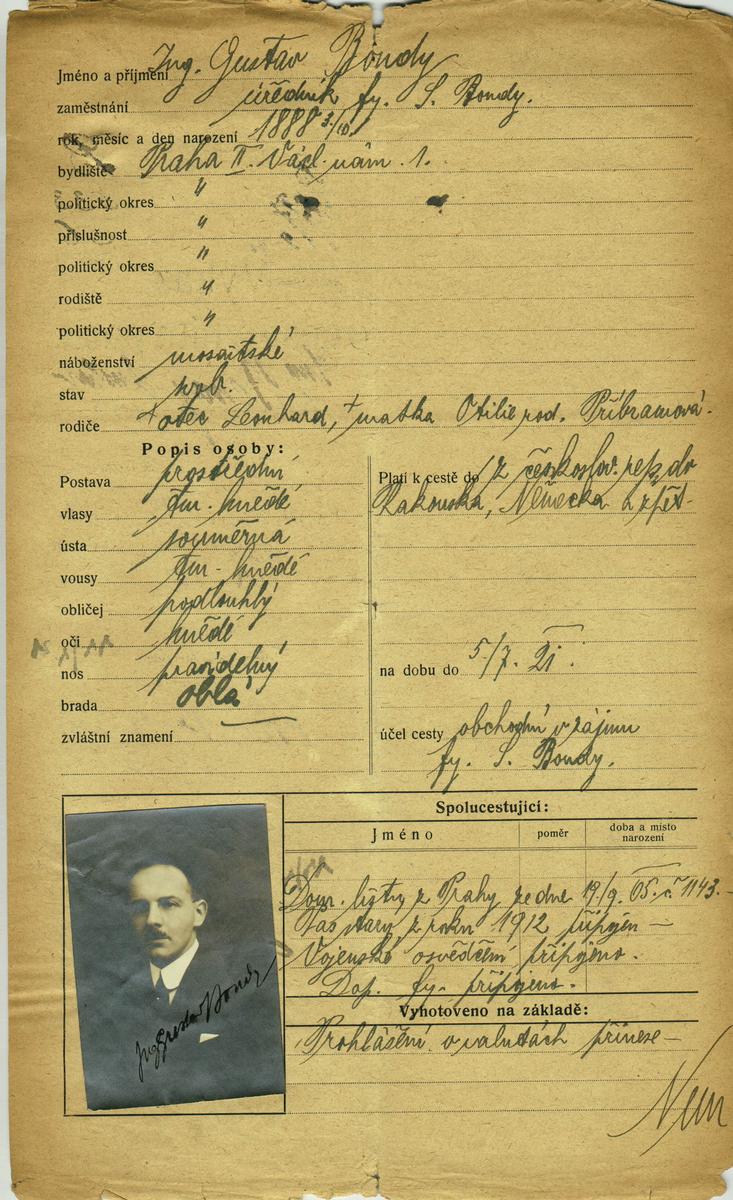 Jméno a příjmení Ing. Gustav Bondy
zaměstnání úředník fy. S. Bondy.
rok, měsíc a den narození 1888 3/10.
bydliště Praha II. Václ. nám. 1.
politický okres "
příslušnost "
politický okres "
rodiště "
politický okres "
náboženství mosaitské
stav svob.
rodiče + otec Leonhard, + matka Otilie roz. Příbramová.
Popis osoby:
Postava prostřední
vlasy tm. hnědé
ústa souměrná
vousy tm. hnědé
obličej podlouhlý
oči hnědé
nos pravidelný
brada oblá
zvláštní znamení
Platí k cestě do z českoslov. rep. do
Rakouska, Německa a zpět-
na dobu do 5/7. 21.
účel cesty obchodní v zájmu
fy. S. Bondy.
Spolucestující:
Jméno poměr doba a místo narození
Dom. listu z Prahy ze dne 19/9. 05. č. 1143.-
Pas starý z roku 1912 připojen -
Vojenské osvědčení připojeno.
Dop. fy. připojeno.
Vyhotoveno na základě:
Prohlášení o valutách přinese-
Ing Gustav Bondy